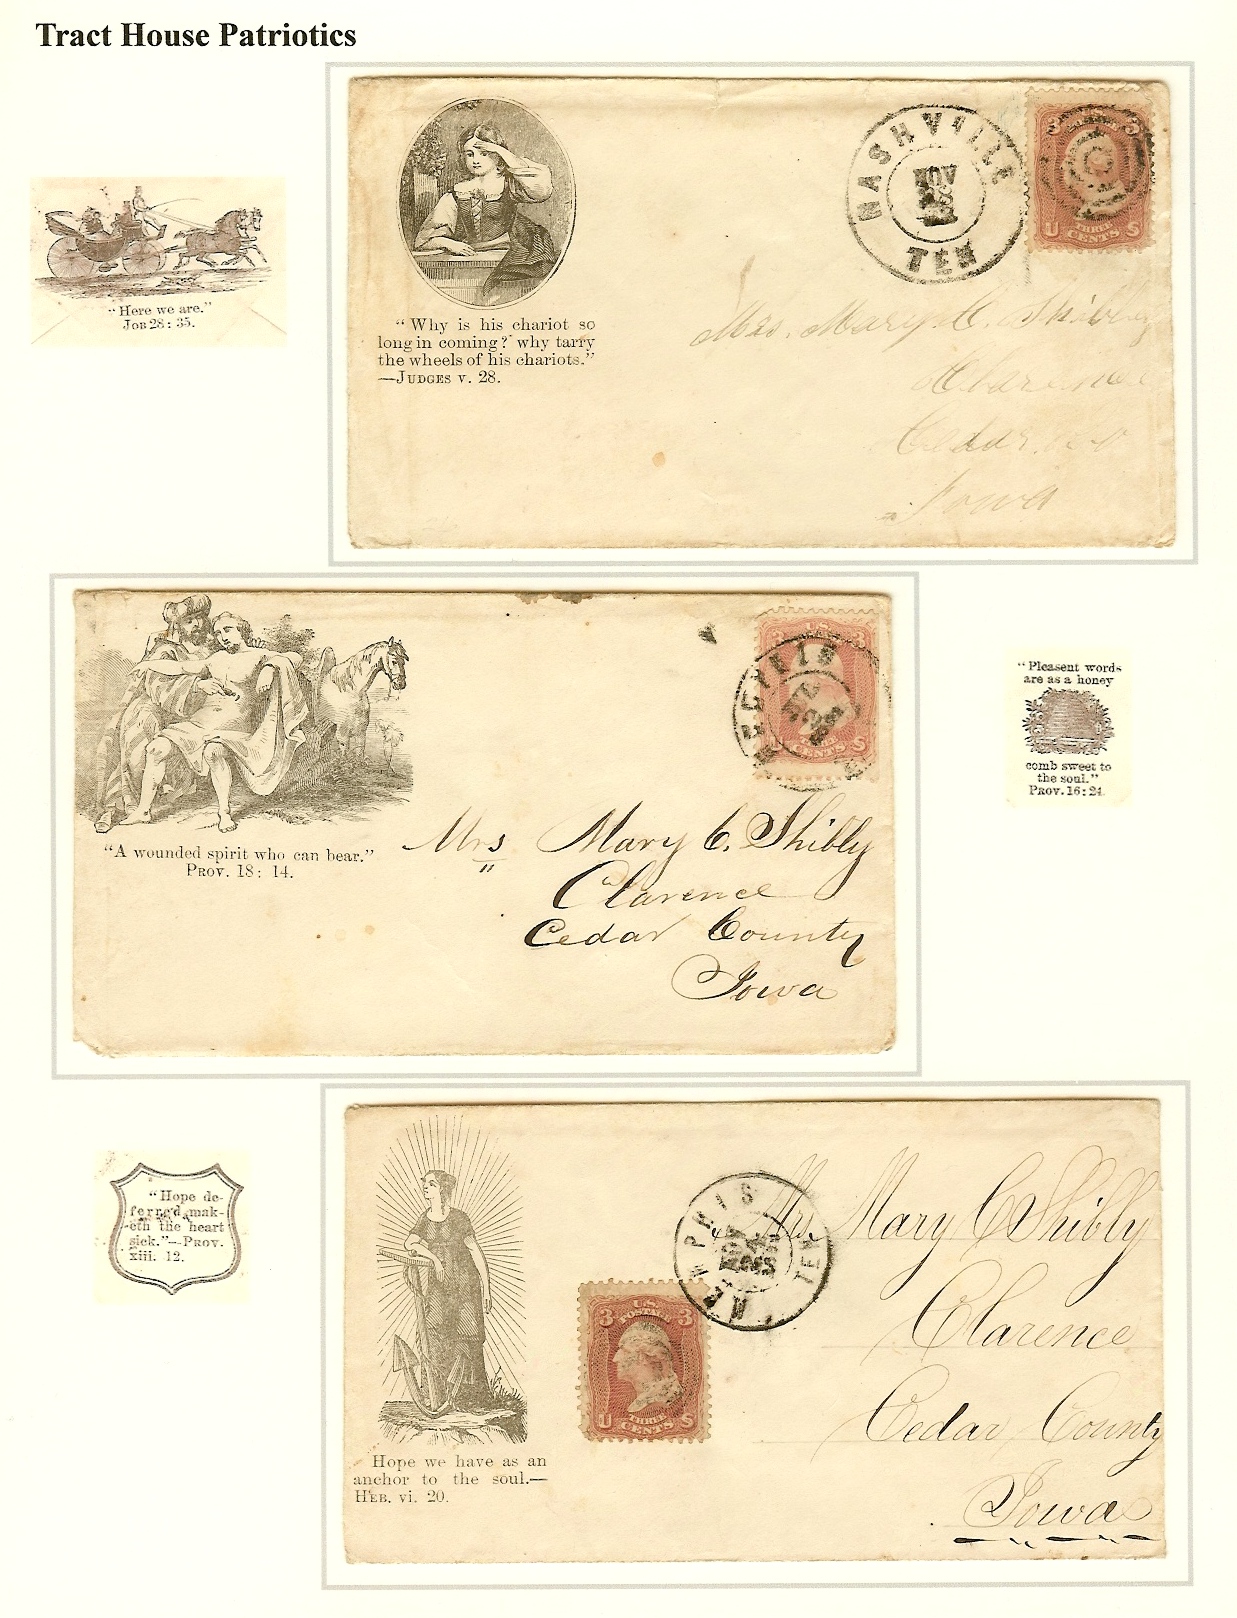 Tract House Patriotics
"Here we are."
JOB 28: 35.
"Why is his chariot so
long in coming? why tarry
the wheels of his chariots."
—JUDGES V. 28.
NASHVILLE
TEN
NOV
3 3
U THREE S
CENTS
Mrs. Mary C. Shibley
Clarence
Cedar
Iowa
"A wounded spirit who can bear."
PROV. 18: 14.
U.S.
3 3
U S
CENTS
Mrs Mary C. Shibly
Clarence
Cedar County
Iowa
"Pleasent words
are as a honey
comb sweet to
the soul."
PROV. 16: 24
"Hope de-
ferred mak-
eth the heart
sick."—PROV.
xiii. 12.
Hope we have as an
anchor to the soul.—
HEB. vi. 20.
MEMPHIS
TEN
NOV
U.S.
3 POSTAGE 3
U THREE S
CENTS
Mrs. Mary C Shibly
Clarence
Cedar County
Iowa